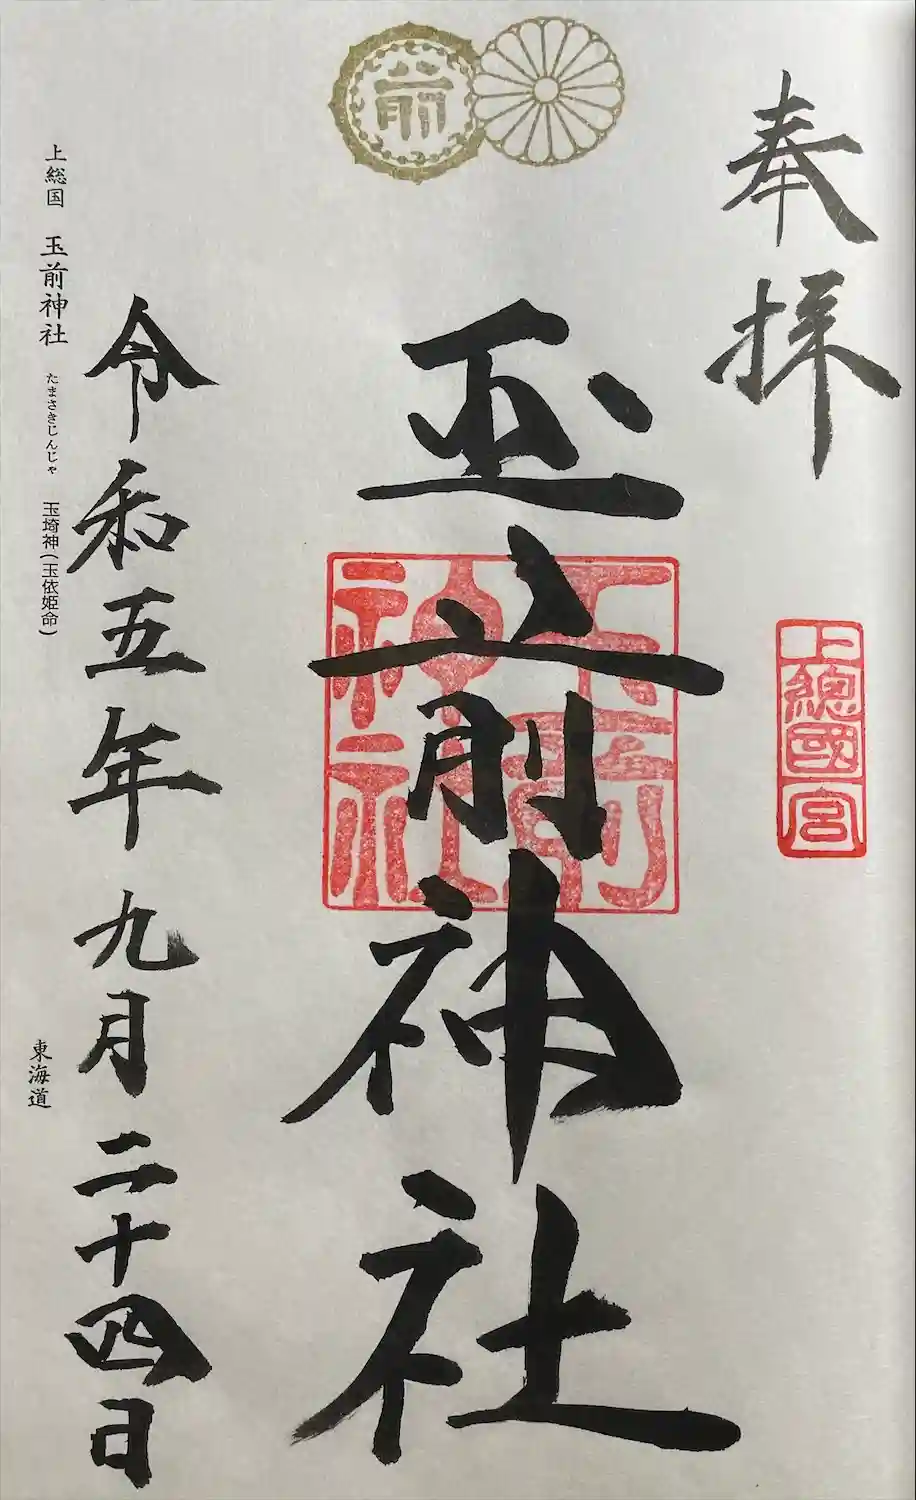 奉拝
上總國一宮
玉前神社
玉前神社
令和五年九月二十四日
上総国 玉前神社 たまさきじんじゃ 玉埼神(玉依姫命)
東海道